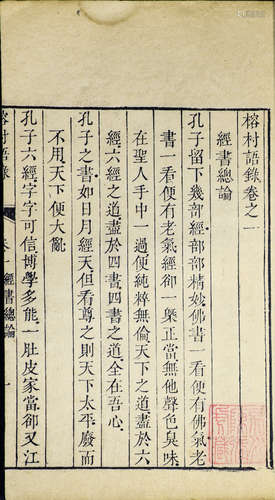 榕村語錄卷之一
經書總論
孔子留下幾部經部部精妙佛書一看便有佛氣老
書一看便有老氣經卻一槩正當無他聲色臭味
在聖人手中一過便純粹無倫天下之道盡於六
經六經之道盡於四書四書之道全在吾心
孔子之書如日月經天但看尊之則天下太平廢而
不用天下便大亂
孔子六經字字可信博學多能一肚皮家當卻又江
榕村語錄
卷一 經書總論
一